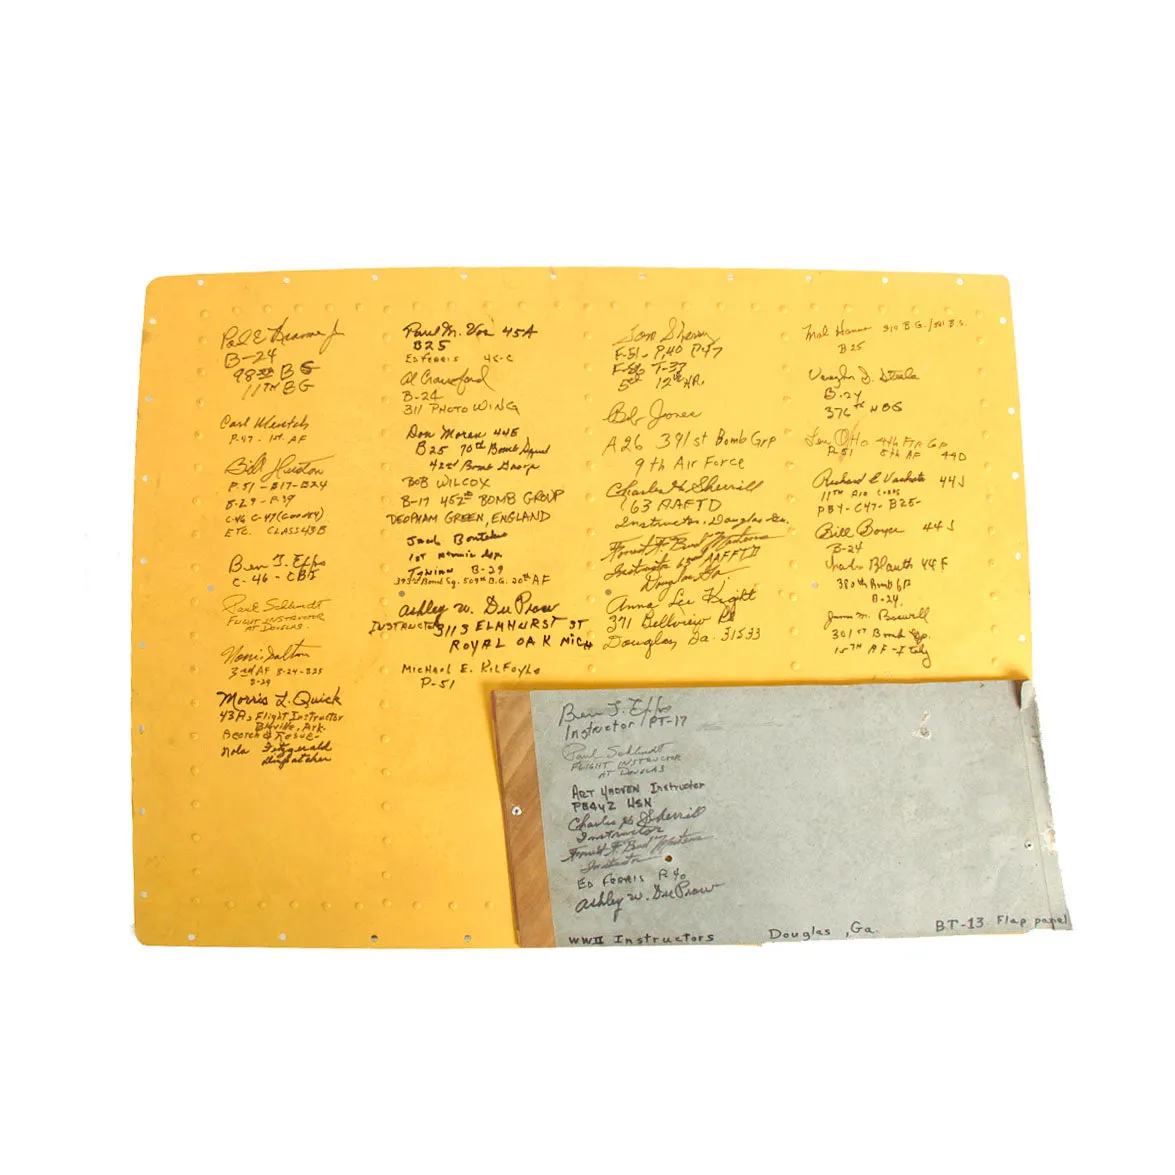 B-24
98TH B G
11TH BG
Carl
P-47 - 1ST AF
Bill Huston
P-51 - B17 - B24
B-29 - P-39
C-46 C-47 (Gooney)
ETC. CLASS 43B
Ben T. Epps
C-46 - CBI
Paul Schlundt
FLIGHT INSTRUCTOR
AT DOUGLAS.
Norris Dalton
3rd AF B-24-B25
B-29
Morris L. Quick
43A, Flight Instructor
Blyville, Ark.
Search & Rescue-
Nola Fitzgerald
dispatcher
Paul M. Vos 45A
B25
ED FERRIS 45-C
Al Crawford
B-24
311 PHOTO WING
Don Moran 44E
B25 70th Bomb Squd
42nd Bomb Group
BOB WILCOX
B-17 452nd BOMB GROUP
DEOPHAM GREEN, ENGLAND
Jack
1st Gp.
Tinian B-29
393rd Bomb Sq. 509th B.G. 20th AF
Ashley W. Du Praw
INSTRUCTOR 3113 ELMHURST ST
ROYAL OAK MICH
MICHAEL E. KILFOYLE
P-51
Tom Sherry
F-51 - P.40 P-47
F-86 T-33
5th 12th
Bob Jones
A26 391st Bomb Grp
9th Air Force
Charles H Sherrill
63 AAFTD
Instructor, Douglas Ga.
Forrest F. "Bud" Martens
Instructor 63rd AAFFTD
Douglas Ga.
Anna Lee Kight
371 Bellview Rd
Douglas, Ga. 31533
Mal 310 B.G./381 B.S.
B25
Vaughn D. Steele
B-24
376th H BG
Len Otto 4th Ftr Gp
P-51 8th AF 44D
Richard E 44J
11TH
PB4 - C47 - B25-
Bill Boyce 44J
B-24
Charles Blauth 44F
380th Bomb GP
B-24.
James M. Boswell
301ST Bomb Gp.
15TH AF - Italy
Ben T. Epps
Instructor PT-17
Paul Schlundt
FLIGHT INSTRUCTOR
AT DOUGLAS
ART Instructor
PB4Y2 USN
Charles H Sherrill
Instructor
Forrest F "Bud" Martens
Instructor
ED FERRIS P40
Ashley W. Du Praw
WWII Instructors Douglas, Ga. BT-13 Flap panel